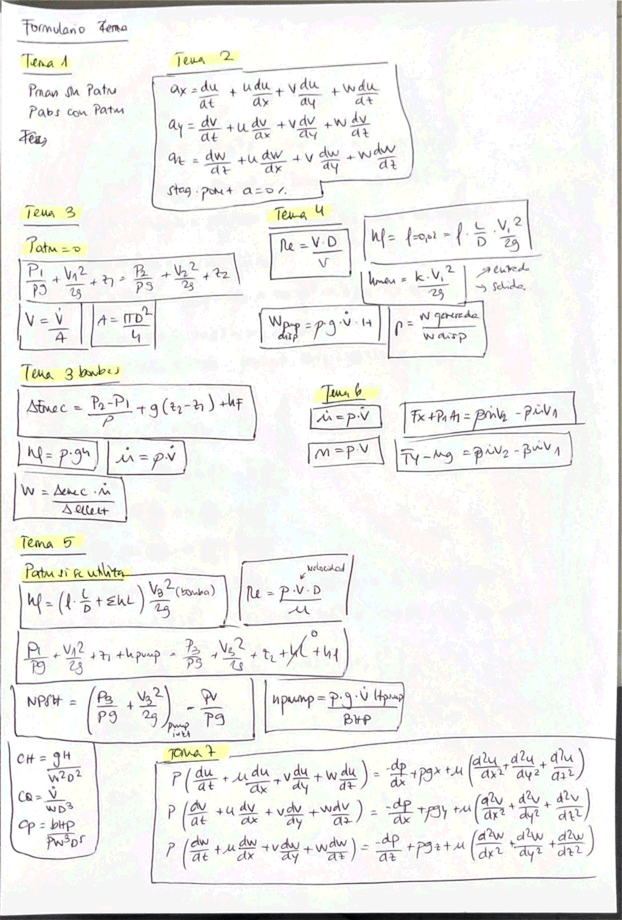 Formulario Tema
Tema 1
Pman sin Patm
Pabs con Patm
Tema 2
ax = du/dt + u du/dx + v du/dy + w du/dz
ay = dv/dt + u dv/dx + v dv/dy + w dv/dz
az = dw/dt + u dw/dx + v dw/dy + w dw/dz
stag. point a=0
Tema 3
Patm=0
P1/ρg + V1²/2g + z1 = P2/ρg + V2²/2g + z2
V = V̇/A
A = πD²/4
Tema 4
Re = V·D/ν
hf = f=0,02 = f · L/D · V1²/2g
hmen = k·V1²/2g → entrada → salida
Wpup disp = ρ·g·V̇·H
η = W generada/W disp
Tema 3 bombas
ΔEmec = P2-P1/ρ + g(z2-z1) + hf
hf = ρ·gh
ṁ = ρ·V̇
W = Δemec·ṁ/
Tema 6
ṁ = ρ·V̇
m = ρ·V
Fx + P1A1 = βṁV2 - βṁV1
Fy - mg = βṁV2 - βṁV1
Tema 5
Patm si se utiliza
hf = (f · L/D + ΣKL) V3²/2g (bomba)
Re = ρ·V·D/μ velocidad
P1/ρg + V1²/2g + z1 + hpump = P3/ρg + V3²/2g + z2 + hL 0 + hf
NPSH = (P3/ρg + V3²/2g) pump inlet - Pv/ρg
ηpump = ρ·g·V̇ Hpump/BHP
CH = gH/w²D²
CQ = V̇/wD³
Cp = bHP/ρw³D⁵
Tema 7
ρ (du/dt + u du/dx + v du/dy + w du/dz) = -dp/dx + ρgx + μ (d²u/dx² + d²u/dy² + d²u/dz²)
ρ (dv/dt + u dv/dx + v dv/dy + w dv/dz) = -dp/dy + ρgy + μ (d²v/dx² + d²v/dy² + d²v/dz²)
ρ (dw/dt + u dw/dx + v dw/dy + w dw/dz) = -dp/dz + ρgz + μ (d²w/dx² + d²w/dy² + d²w/dz²)